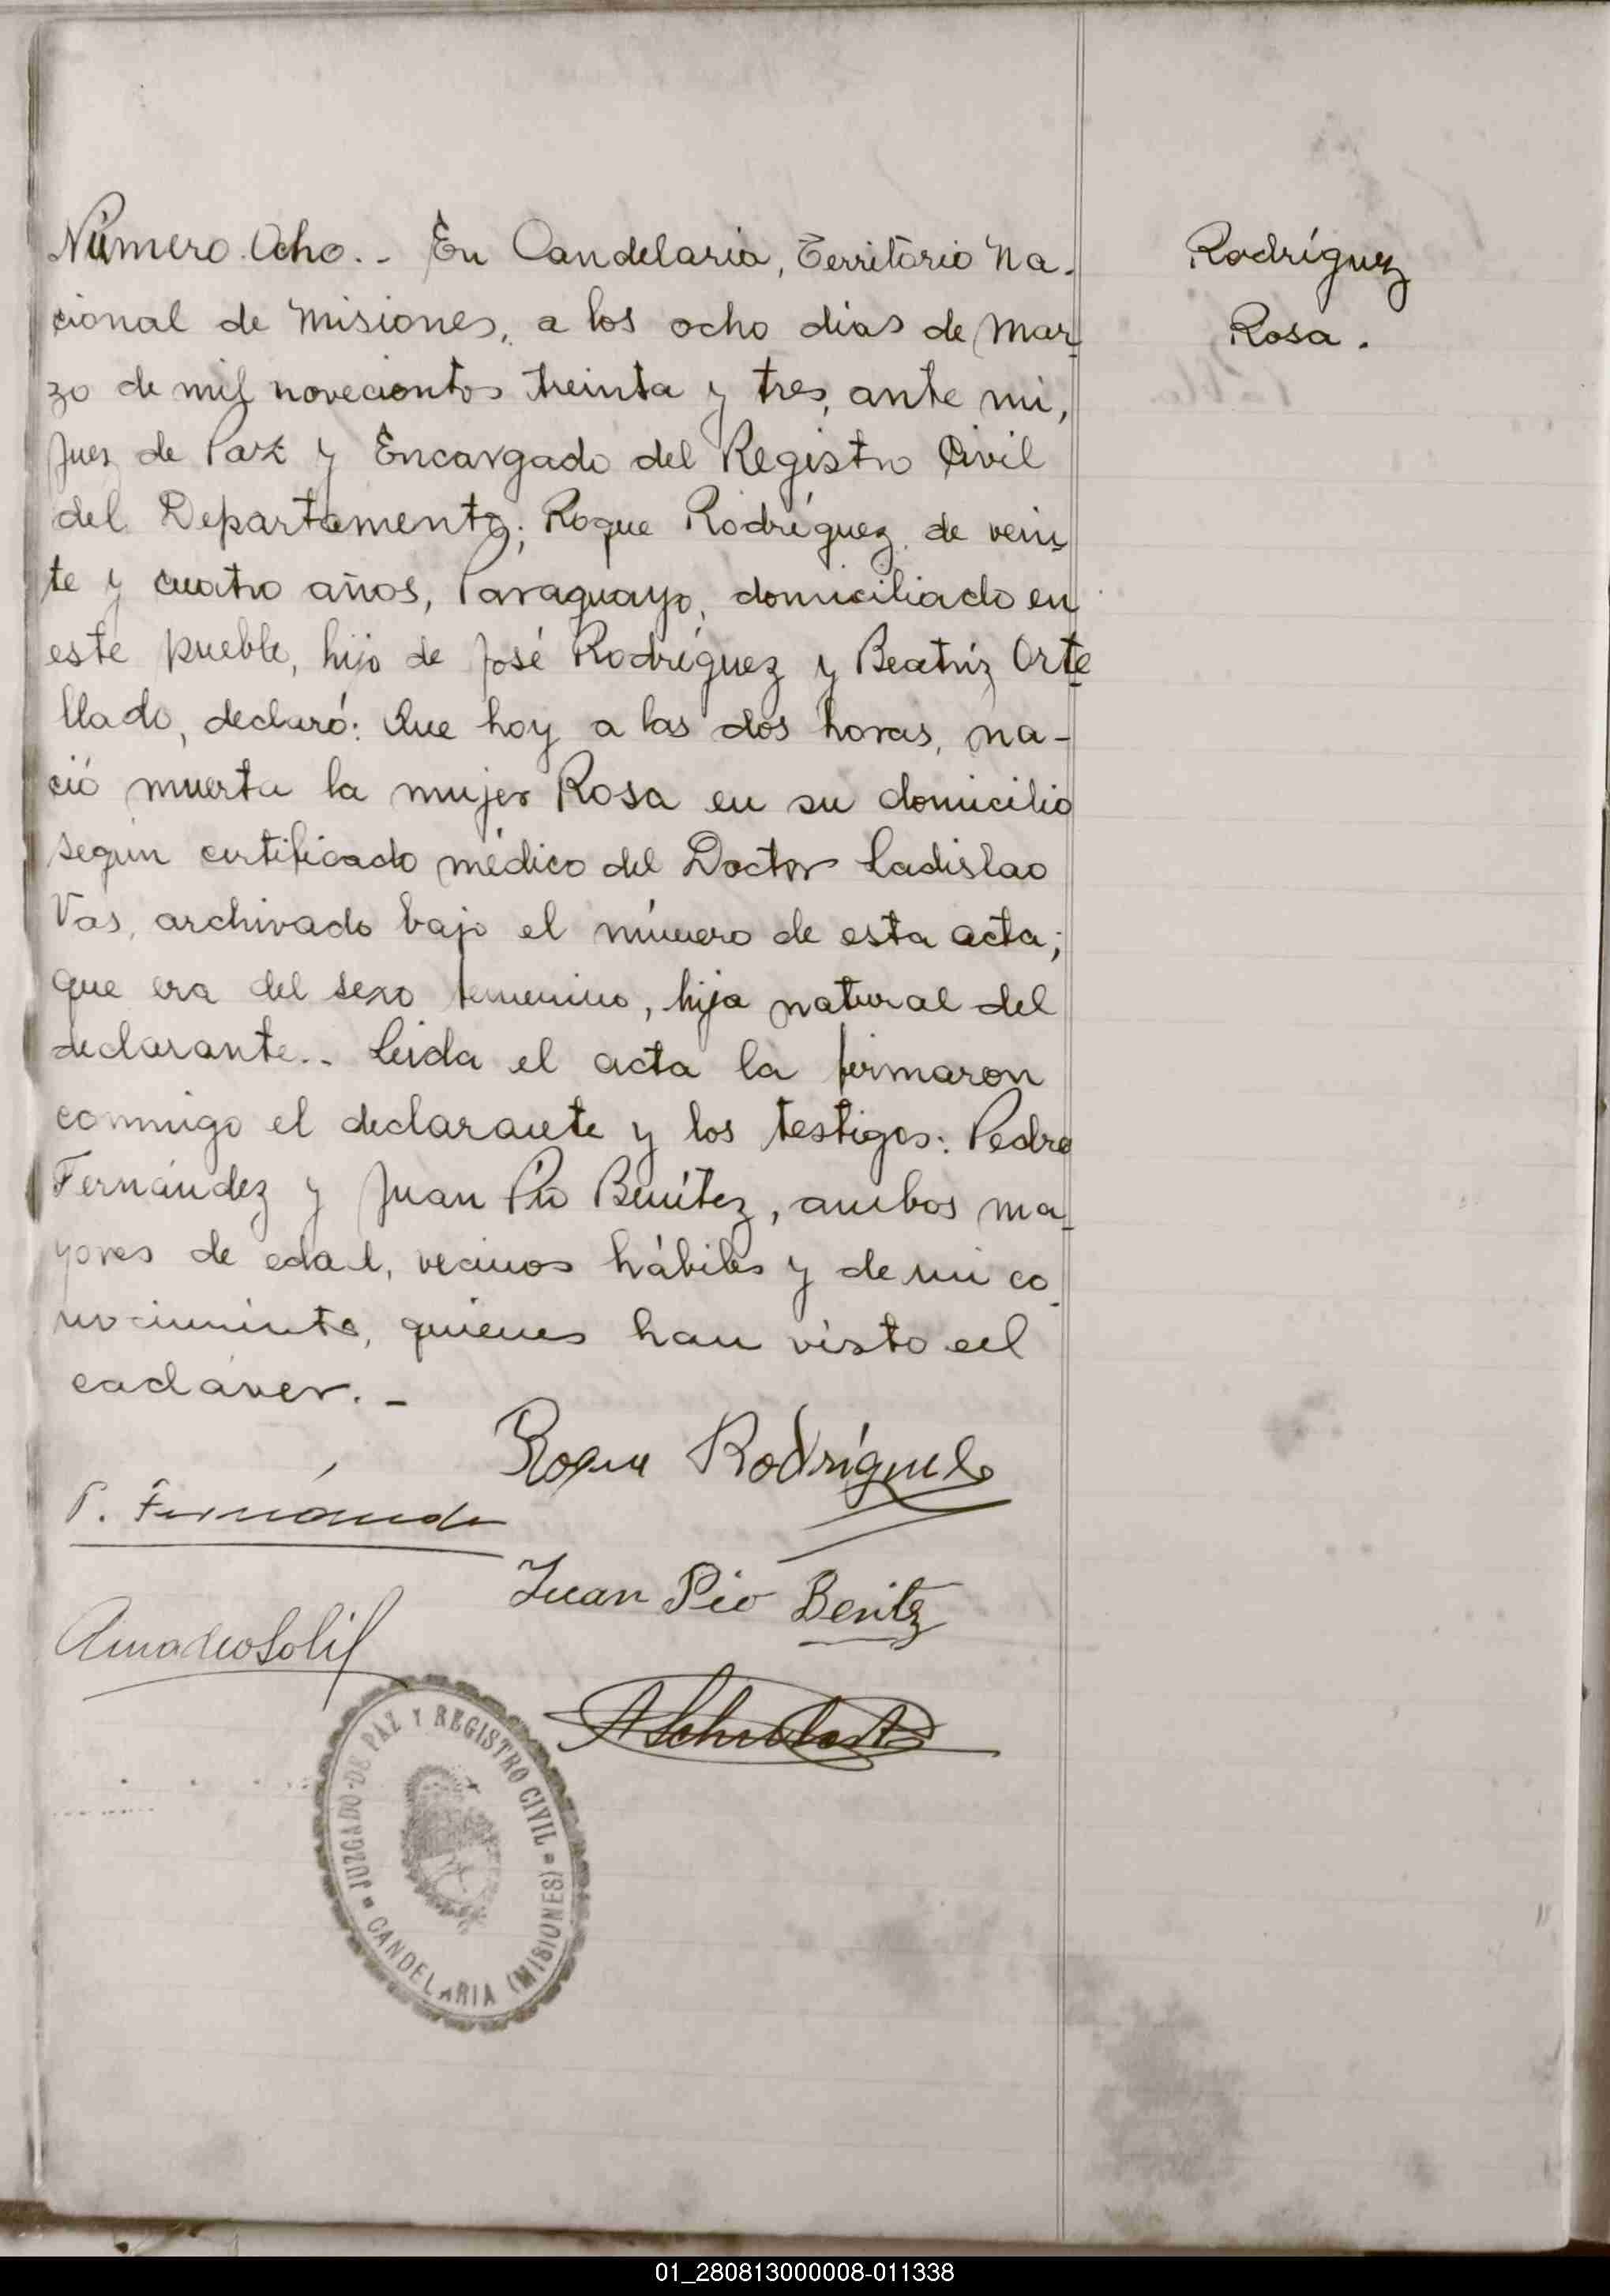 Número Ocho.- En Candelaria, Territorio Na-
cional de Misiones, a los ocho dias de Mar-
zo de mil novecientos treinta y tres, ante mi,
Juez de Paz y Encargado del Registro Civil
del Departamento; Roque Rodríguez, de vein-
te y cuatro años, Paraguayo, domiciliado en
este pueblo, hijo de José Rodríguez y Beatríz Orte-
llado, declaró: Que hoy a las dos horas, na-
ció muerta la mujer Rosa en su domicilio
según certificado médico del Doctor Ladislao
Vas, archivado bajo el número de esta acta;
que era del sexo femenino, hija natural del
declarante.- Leida el acta la firmaron
conmigo el declarante y los testigos: Pedro
Fernández y Juan Pio Benítez, ambos ma-
yores de edad, vecinos hábiles y de mi co-
nocimiento, quienes han visto el
cadáver.-
Rodríguez
Rosa.
Roque Rodríguez
P. Fernández
Juan Pio Benitez
JUZGADO DE PAZ Y REGISTRO CIVIL
CANDELARIA (MISIONES)
01_280813000008-011338